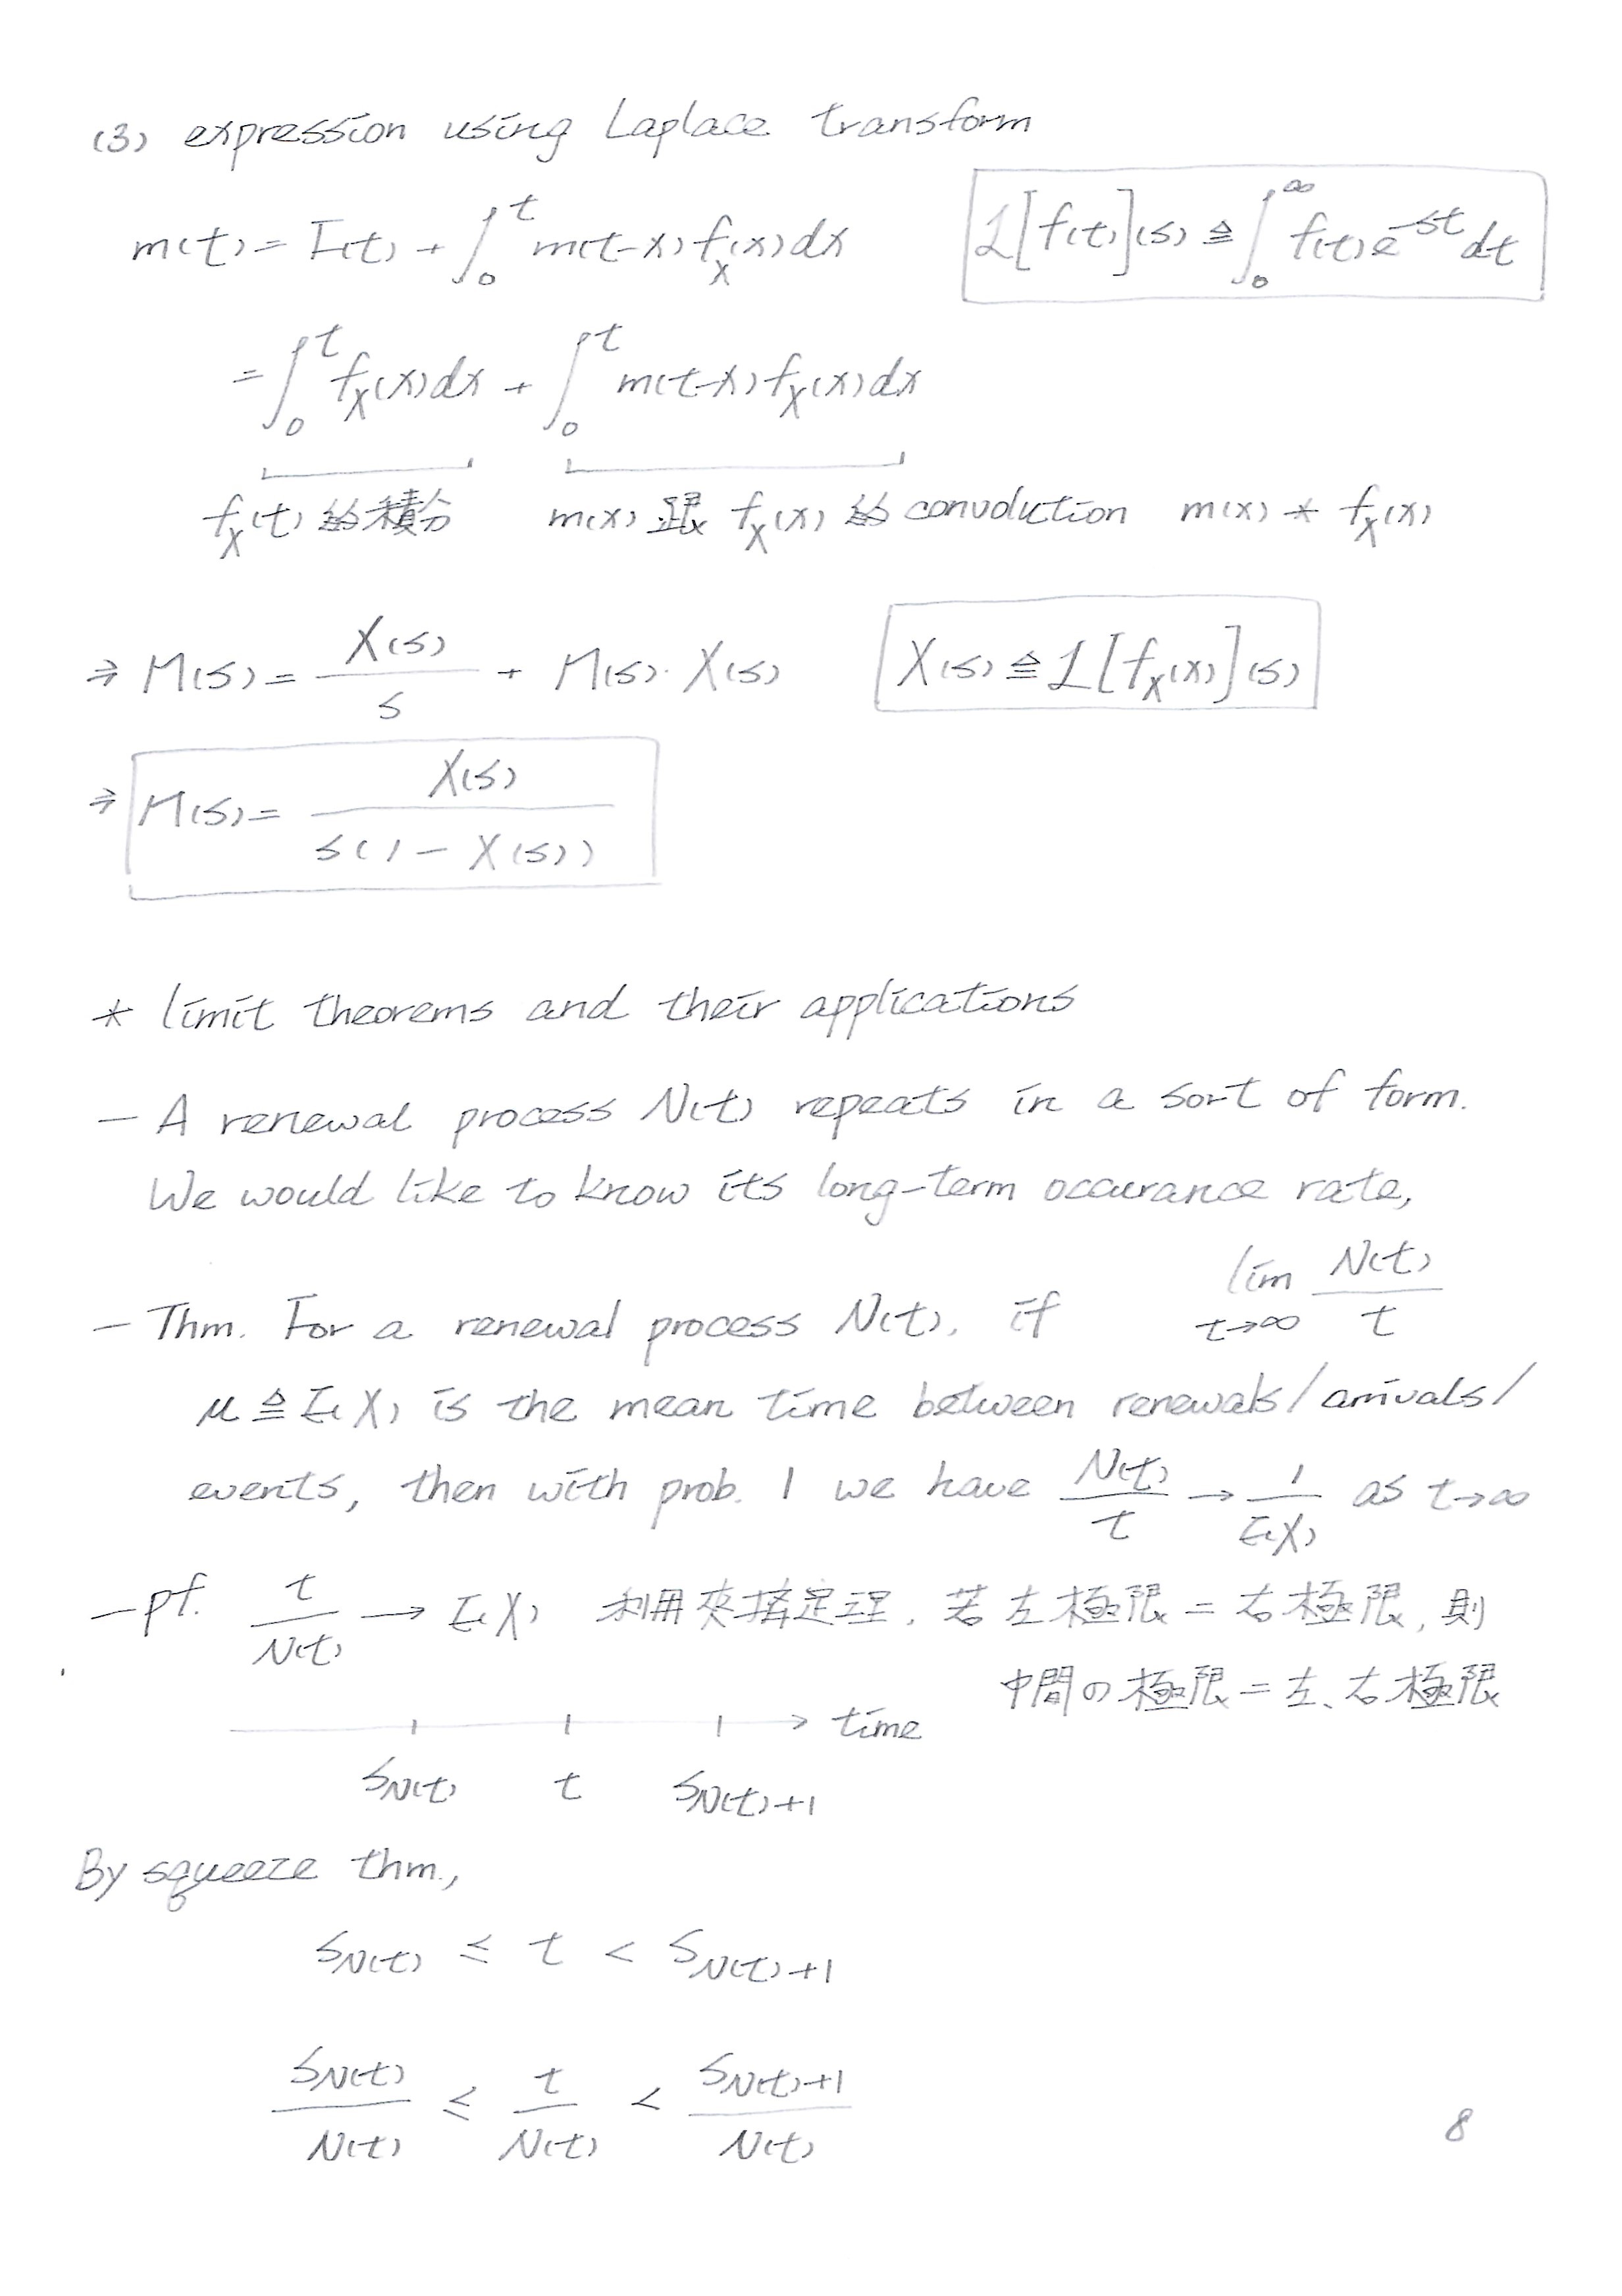 (3) expression using Laplace transform
m(t) = F(t) + ∫₀ᵗ m(t-x) f_X(x) dx    ℒ[f(t)](s) ≜ ∫₀^∞ f(t) e^{-st} dt
= ∫₀ᵗ f_X(x) dx + ∫₀ᵗ m(t-x) f_X(x) dx
f_X(t) 的積分    m(x) 跟 f_X(x) 的 convolution    m(x) * f_X(x)
⇒ M(s) = X(s)/s + M(s)·X(s)    X(s) ≜ ℒ[f_X(x)](s)
⇒ M(s) = X(s)/(s(1-X(s)))
* limit theorems and their applications
- A renewal process N(t) repeats in a sort of form.
We would like to know its long-term occurance rate,
lim_{t→∞} N(t)/t
- Thm. For a renewal process N(t), if
μ ≜ E(X) is the mean time between renewals/arrivals/
events, then with prob. 1 we have N(t)/t → 1/E(X) as t→∞
- pf. t/N(t) → E(X) 利用夾擠定理, 若左極限 = 右極限, 則
中間の極限 = 左、右極限
time
S_{N(t)}    t    S_{N(t)+1}
By squeeze thm.,
S_{N(t)} ≤ t < S_{N(t)+1}
S_{N(t)}/N(t) ≤ t/N(t) < S_{N(t)+1}/N(t)
8